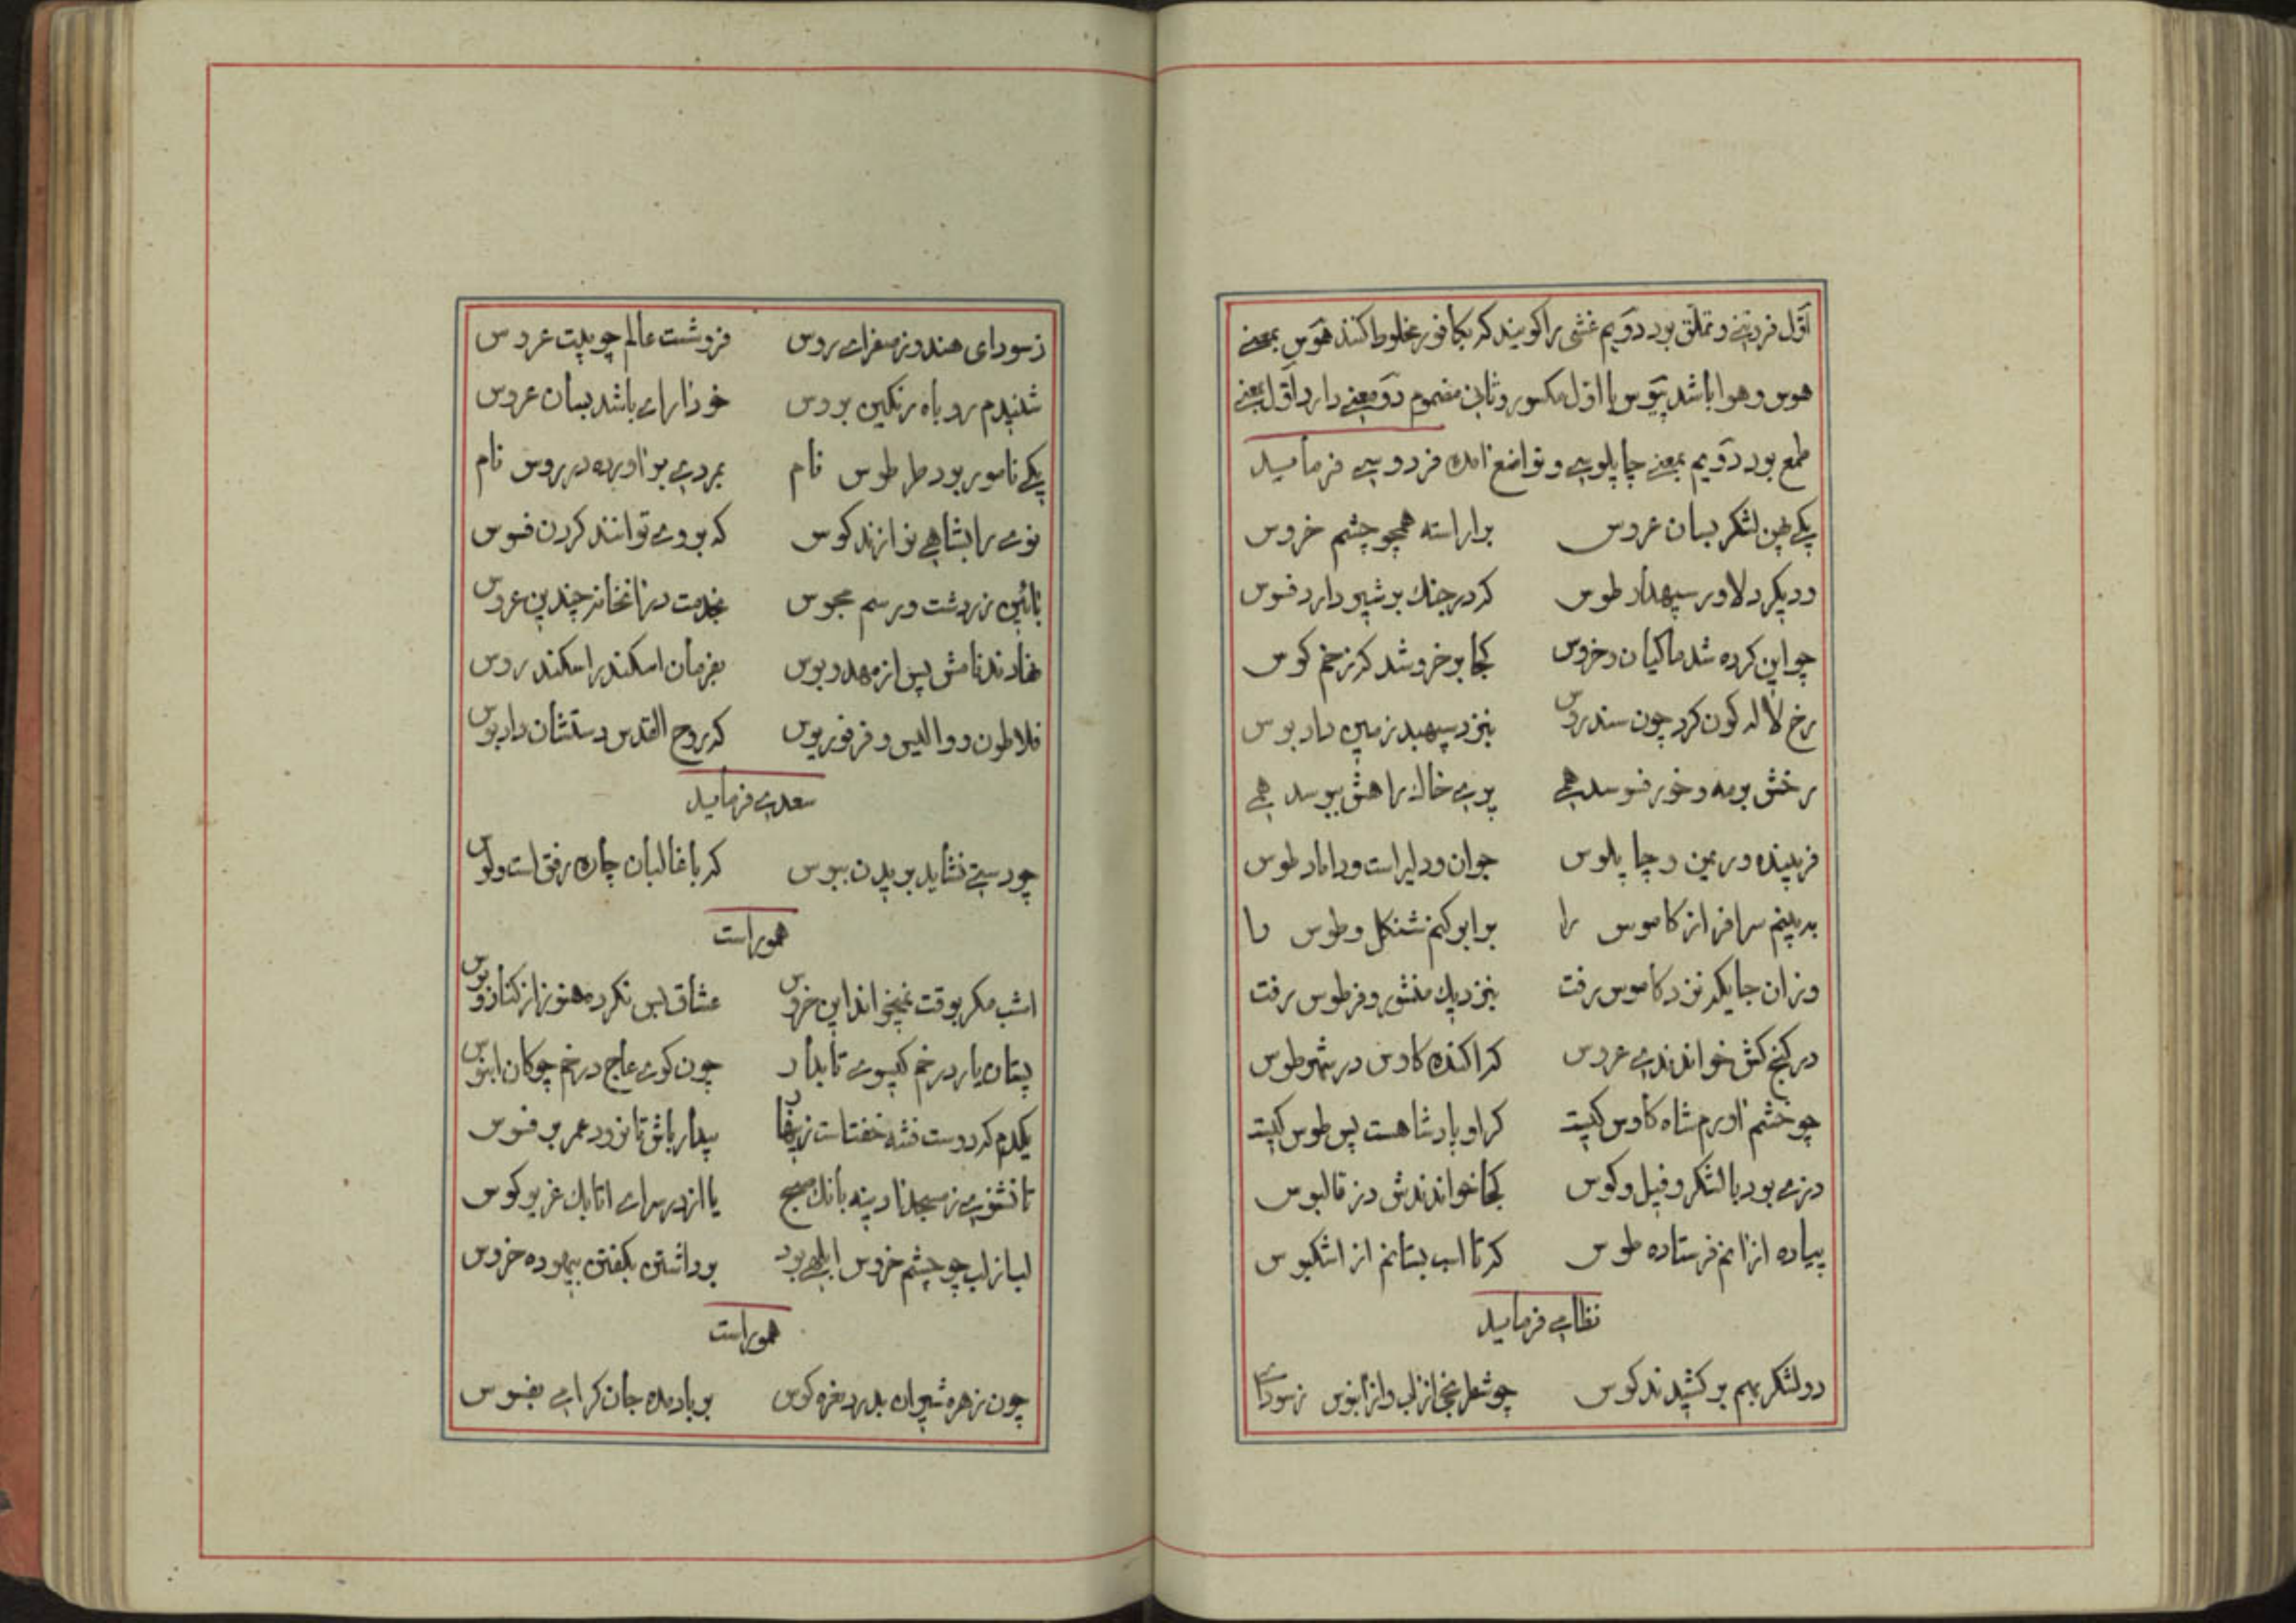 اول فروتنی و تملق بود دویم غشی را کویند که بکافور مخلوط کنند هوس بمعنی
هوس و هوا باشد پیوس با اول مکسور و ثانی مضموم دو معنی دارد اول بمعنی
طمع بود دویم بمعنی چاپلوسی و تواضع آمده فردوسی فرماید
یکی پهن لشکر بسان عروس براراسته همچو چشم خروس
ودیکر دلاور سپهدار طوس که در جنک بر شیر دارد فسوس
چو این کرده شد ماکیان و خروس کجا بر خروشد که زخم کوس
رخ لاله کون کرد چون سندروس بنزد سپهبد زمین داد بوس
رخش بر مه و خور فسوسد همی پری خاک راهش ببوسد همی
فریبنده و ریمن و چاپلوس جوان و دلیر است و داماد طوس
به بینم سرافراز کاموس را برابر کنم شنکل و طوس را
وزان جایکه نزد کاموس رفت بنزدیک منشور و فرطوس رفت
در کنج کش خواندندی عروس که اکنده کاوس در شهر طوس
چو خشم اورم شاه کاوس کیست که او پادشاهست پس طوس کیست
دزی بود با لشکر و فیل و کوس کجا خواندندش دز قالبوس
پیاده ازانم فرستاده طوس که تا اسب بستانم از اشکبوس
نظامی فرماید
دو لشکر بهم بر کشیدند کوس چو شطرنجی از لب و از ابنوس
زسودای
زسودای هندو ز صفرای روس فروشست عالم چو بیت عروس
شنیدم روباه رنکین بروس خودارای باشد بسان عروس
یکی نامور بود طرطوس نام بمردی براورده در روس نام
نوی را بشاهی نوازند کوس که بر وی توانند کردن فسوس
بائین زردشت و رسم مجوس بخدمت در انخانه چندین عروس
نهادند نامش پس از مهد و بوس بفرمان اسکندر اسکندروس
فلاطون و والیس و فرفوریوس که روح القدس دستشان داد بوس
سعدی فرماید
چو دستی نشاید بریدن ببوس که با غالبان چاره رفق است و لوس
هموراست
امشب مکر بوقت نمیخواند این خروس عشاق بس نکرده هنوز از کنار و بوس
پستان یار در خم کیسوی تابدار چون کوی عاج در خم چوکان ابنوس
یکدم که دوست فتنه خفتاست زینهار بیدار باش تا نرود عمر بر فسوس
تا نشنوی ز مسجد ادینه بانک صبح یا از در سرای اتابک غریو کوس
لب از لب چو چشم خروس ابلهی بود برداشتن بکفتن بیهوده خروس
هموراست
چون زهره شیران بدرد نعره کوس بر باد مده جان کرامی بفسوس